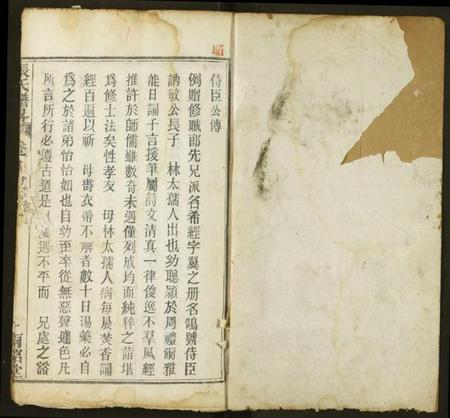 侍臣公傳
例贈修職郎先兄派名希經字翼之册名鵠號侍臣
訥敏公長子 林太孺人出也幼聰穎於周禮爾雅
能日誦千言援筆屬詩文清真一律俊逸不羣風經
推許於師儒雖數奇未遇僅列成均而純粹之詣堪
為修士法矣性孝友 母林太孺人病每晨焚香誦
經百遍以祈 母壽衣帶不解者數十日湯藥必自
為之於諸弟怡怡如也自幼至卒從無惡聲遽色凡
所言所行必遵古道是 遇不平而 兄處之豁
張氏譜